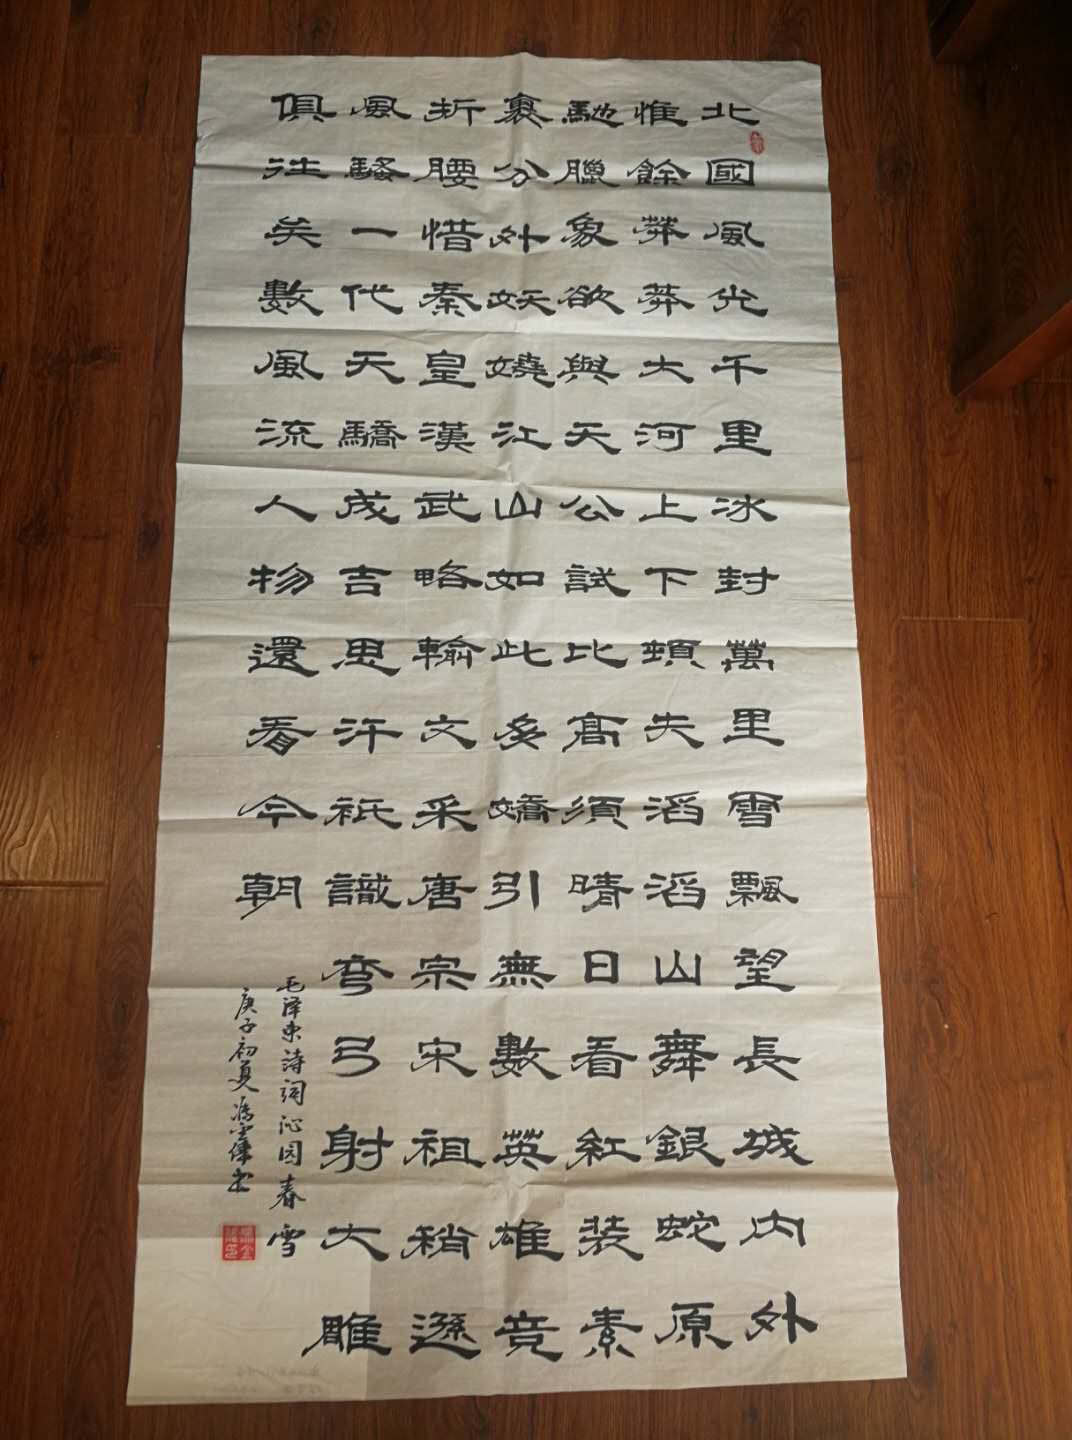 北國風光千里冰封萬里雪飄望長城内外
惟餘莽莽大河上下頓失滔滔山舞銀蛇原
馳臘象欲與天公試比高須晴日看紅装素
裹分外妖嬈江山如此多嬌引無數英雄竞
折腰惜秦皇漢武略輸文采唐宗宋祖稍遜
風騷一代天驕成吉思汗祇識弯弓射大雕
俱往矣數風流人物還看今朝
毛泽东诗词沁园春雪
庚子初夏冯书